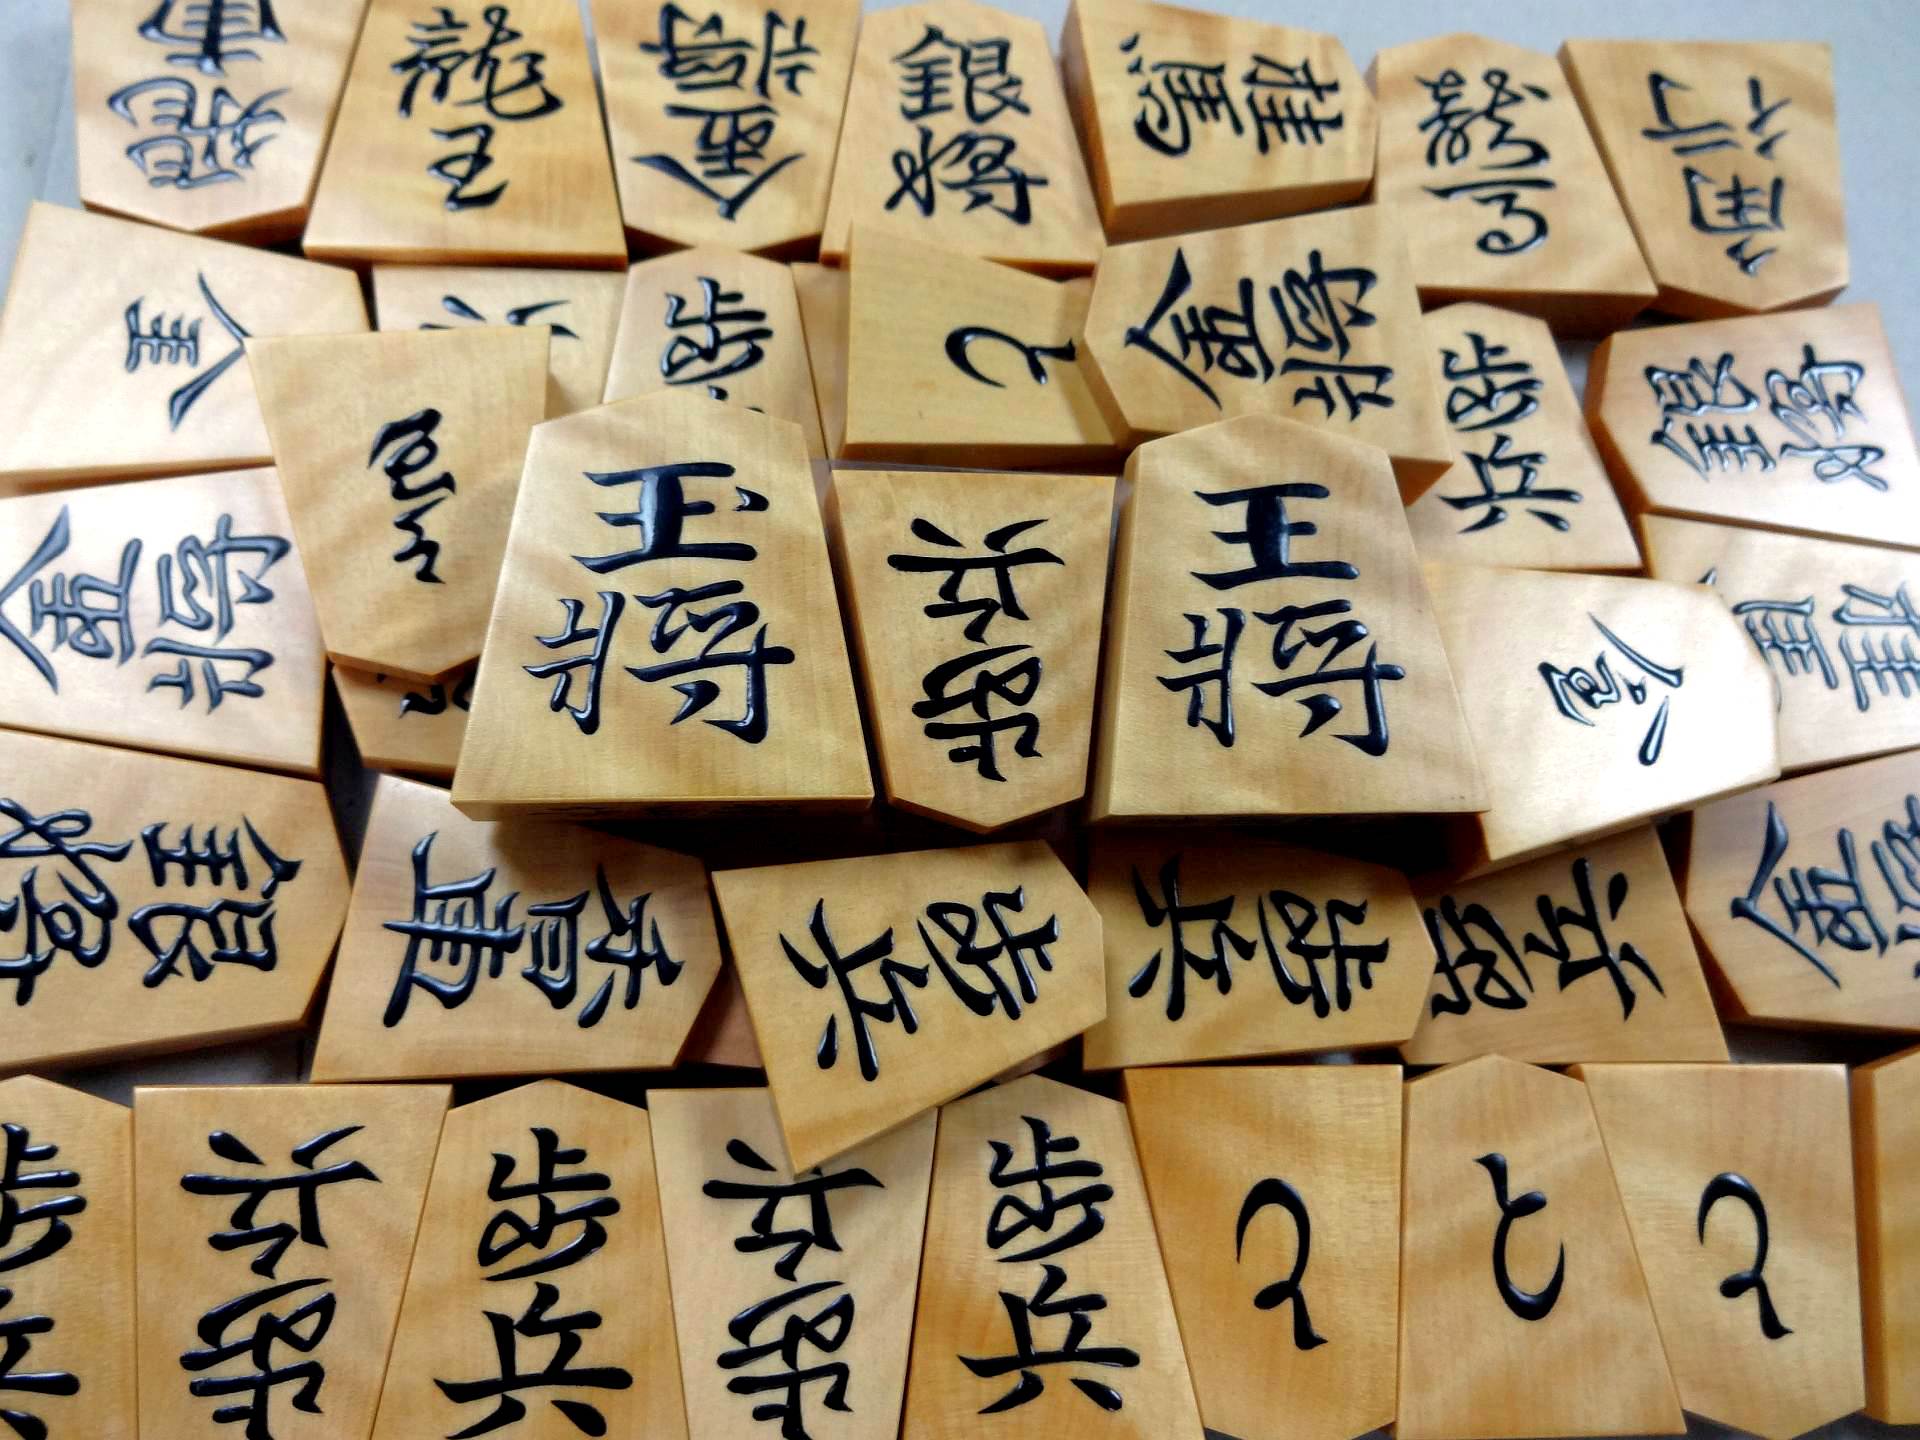 飛車
龍王
金将
銀将
桂馬
龍馬
角行
全
歩
と
金将
歩兵
銀将
金将
玉将
歩兵
王将
桂馬
銀将
香車
歩兵
歩兵
歩兵
金将
歩兵
歩兵
歩兵
歩兵
歩兵
と
と
と